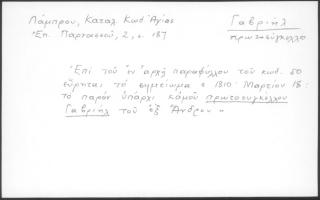 Λάμπρου, Καταλ. Κωδ. Ἁγίας
Ἐπ. Παρνασσού, 2, σ. 187
Γαβριήλ
πρωτοσύγκελλο
Ἐπί τοῦ ἐν ἀρχῇ παραφύλλου τοῦ κωδ. 50
εὕρηται τό σημείωμα « 1810· Μαρτίου 18·
τό παρόν ὑπάρχι κἀμοῦ πρωτοσυγκέλλου
Γαβριήλ τοῦ ἐξ Ἄνδρου »